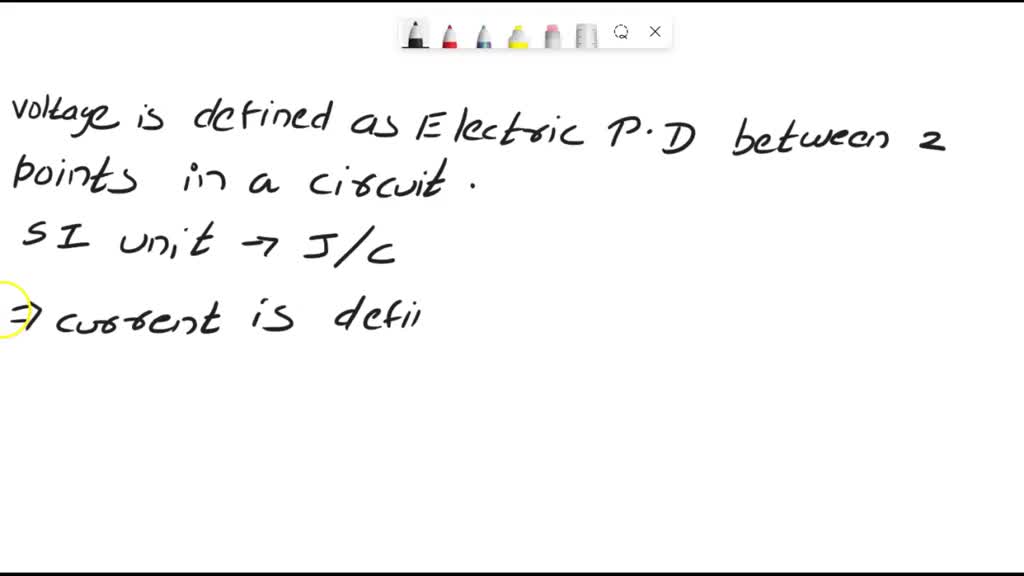 voltage is defined as Electric P.D between 2
points in a circuit.
SI unit → J/C
⇒ current is defi